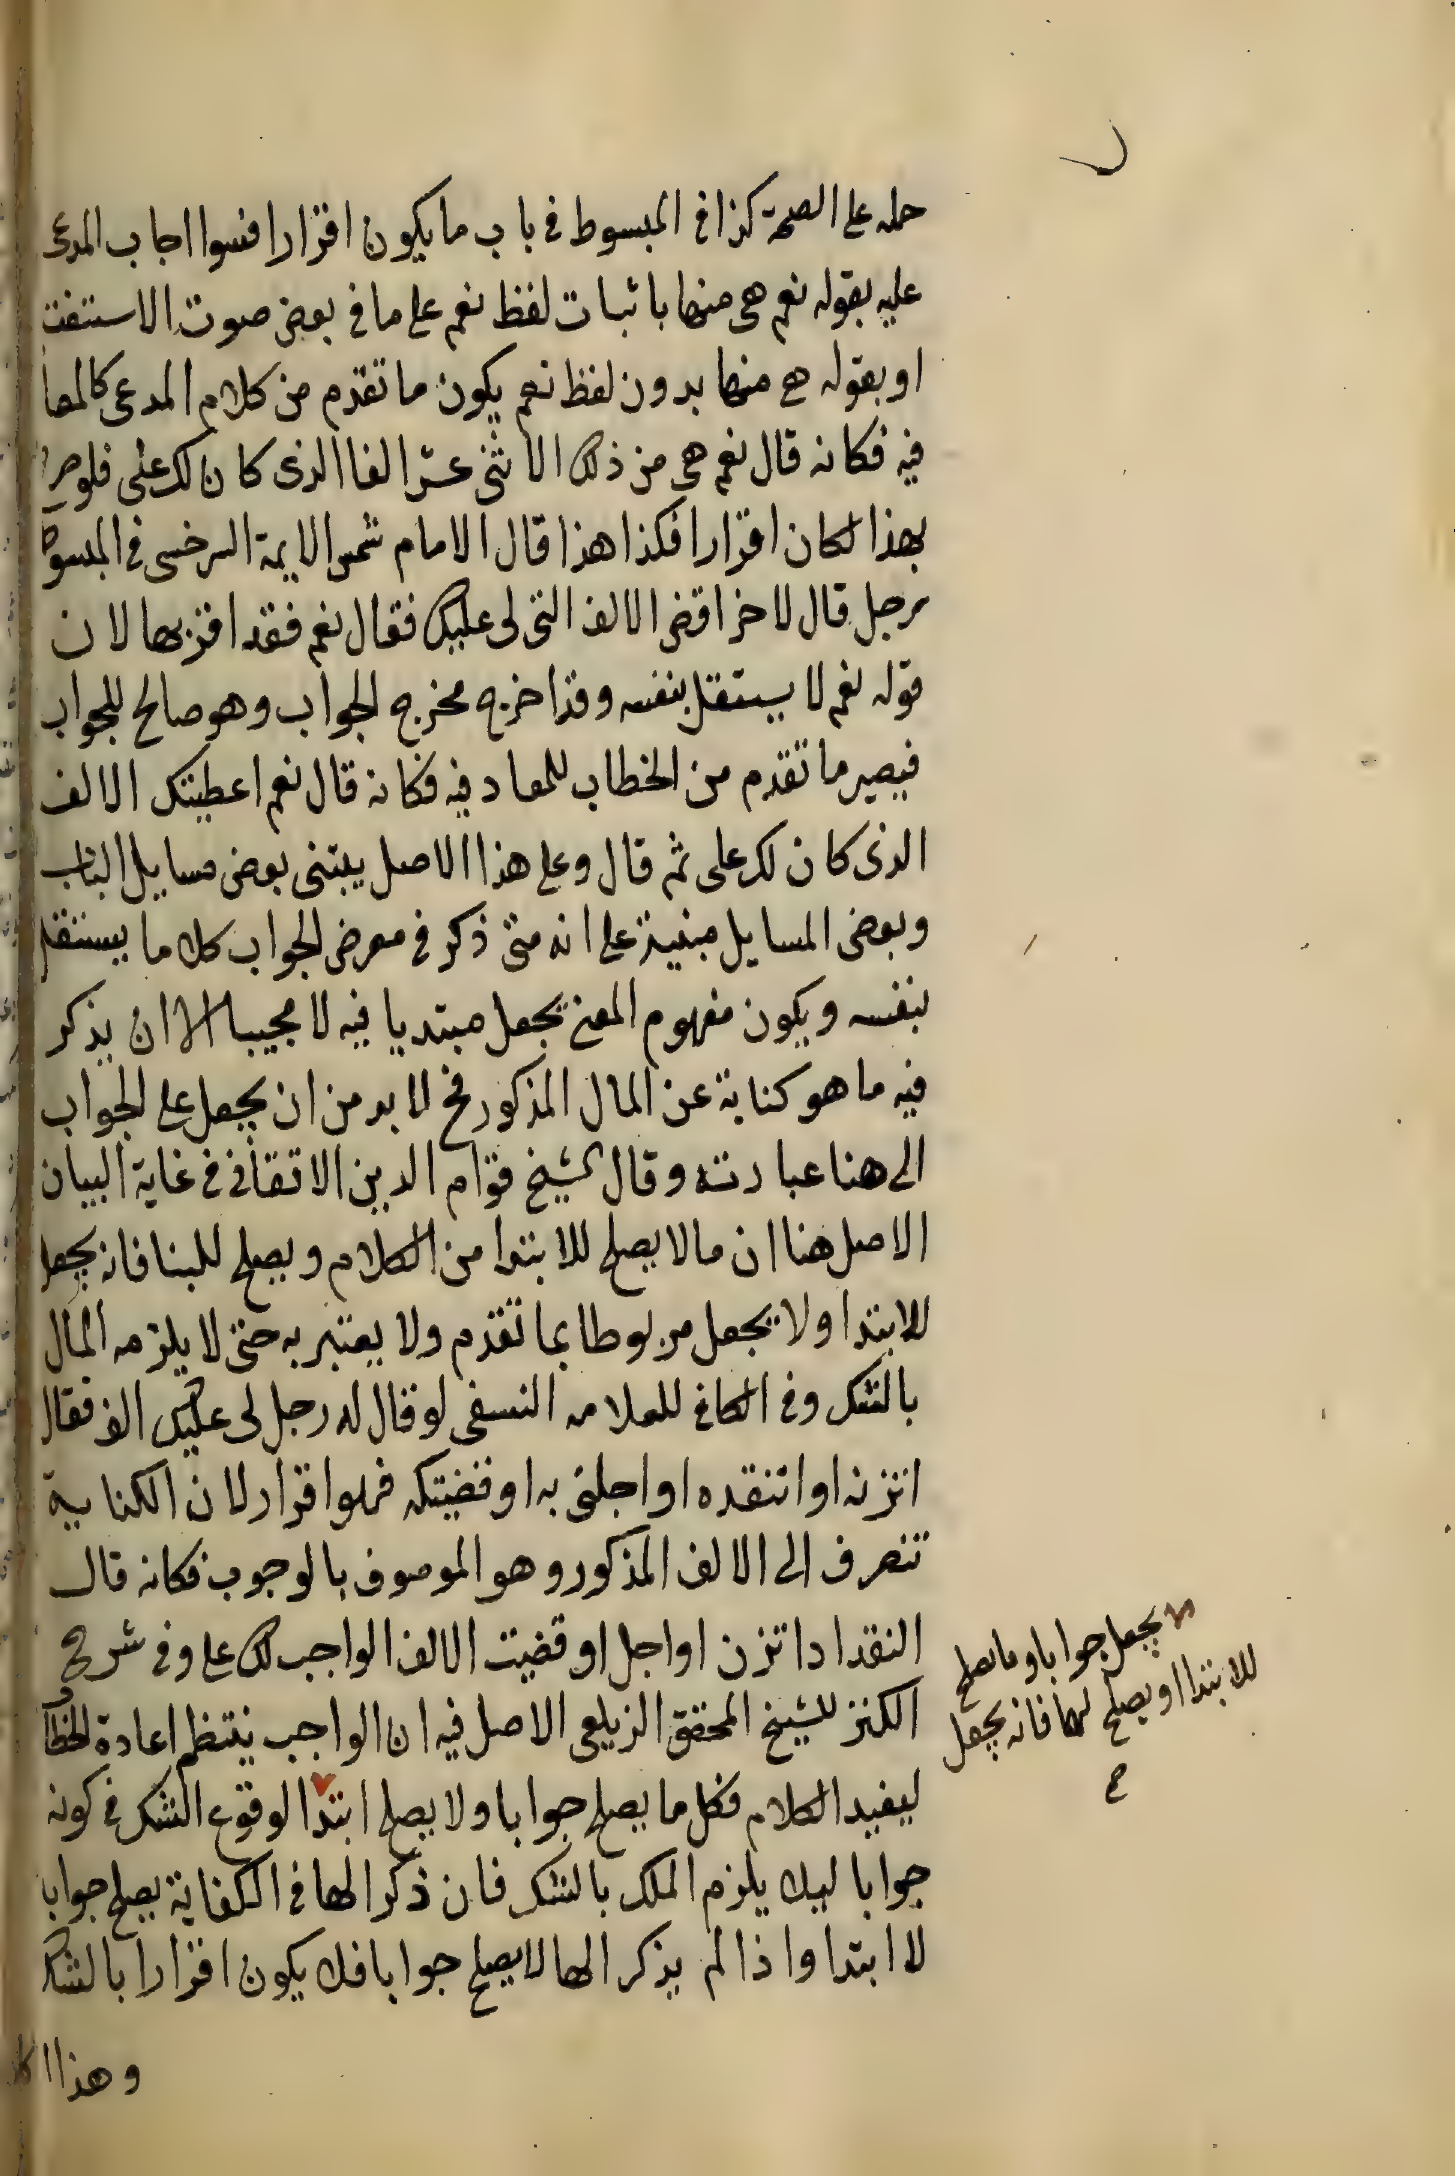 حمله على الصحة كذا في المبسوط في باب ما يكون اقرارا فسوا اجاب المدعى
عليه بقوله نعم هي منها باثبات لفظ نعم على ما في بعض صوت الاستفت
او بقوله هي منها بدون لفظ نعم يكون ما تقدم من كلام المدعى كالمعا
فيه فكانه قال نعم هي من ذلك الاثنى عشر الفا الذى كان لك على فلو صر
بهذا لكان اقرارا فكذا هذا قال الامام شمس الايمة السرخسى في المبسوط
رجل قال لاخر اقض الالف التى لى عليك فقال نعم فقد اقر بها لان
قوله نعم لا يستقل بنفسه وقد اخرج مخرج الجواب وهو صالح للجواب
فيصير ما تقدم من الخطاب للمعاد فيه فكانه قال نعم اعطيتك الالف
الذى كان لك على ثم قال وعلى هذا الاصل يبتنى بعض مسايل الباب
وبعض المسايل مبنية على انه متى ذكر في معرض الجواب كلاما يستقل
بنفسه ويكون مفهوم المعنى يجعل مبتديا فيه لا مجيبا الا ان يذكر
فيه ما هو كناية عن المال المذكور فح لا بد من ان يجعل على الجواب
الى هنا عبارته وقال الشيخ قوام الدين الاتقانى في غاية البيان
الاصل هنا ان ما لا يصلح للابتدا من الكلام ويصلح للبنا فانه يجعل
للابتدا ولا يجعل مربوطا بما تقدم ولا يعتبر به حتى لا يلزمه المال
بالشك وفي الكافى للعلامه النسفى لو قال له رجل لى عليك الف فقال
اتزنه او انتقده او اجلنى به او قضيتكه فهو اقرار لان الكناية
تنصرف الى الالف المذكور وهو الموصوف بالوجوب فكانه قال
النقد اداتزن او اجل او قضيت الالف الواجب لك على وفي شرح
الكنز للشيخ المحقق الزيلعى الاصل فيه ان الواجب ينتظم اعادة الخطا
ليفيد الكلام فكل ما يصلح جوابا ولا يصلح ابتدا لوقوع الشك في كونه
جوابا ليلا يلزم الملك بالشك فان ذكر الها في الكفاية يصلح جوابا
لا ابتدا واذا لم يذكر الها لا يصلح جوابا فلا يكون اقرارا بالشك
وهذا
يجعل جوابا وما يصلح
للابتدا او يصلح لهما فانه يجعل
صح